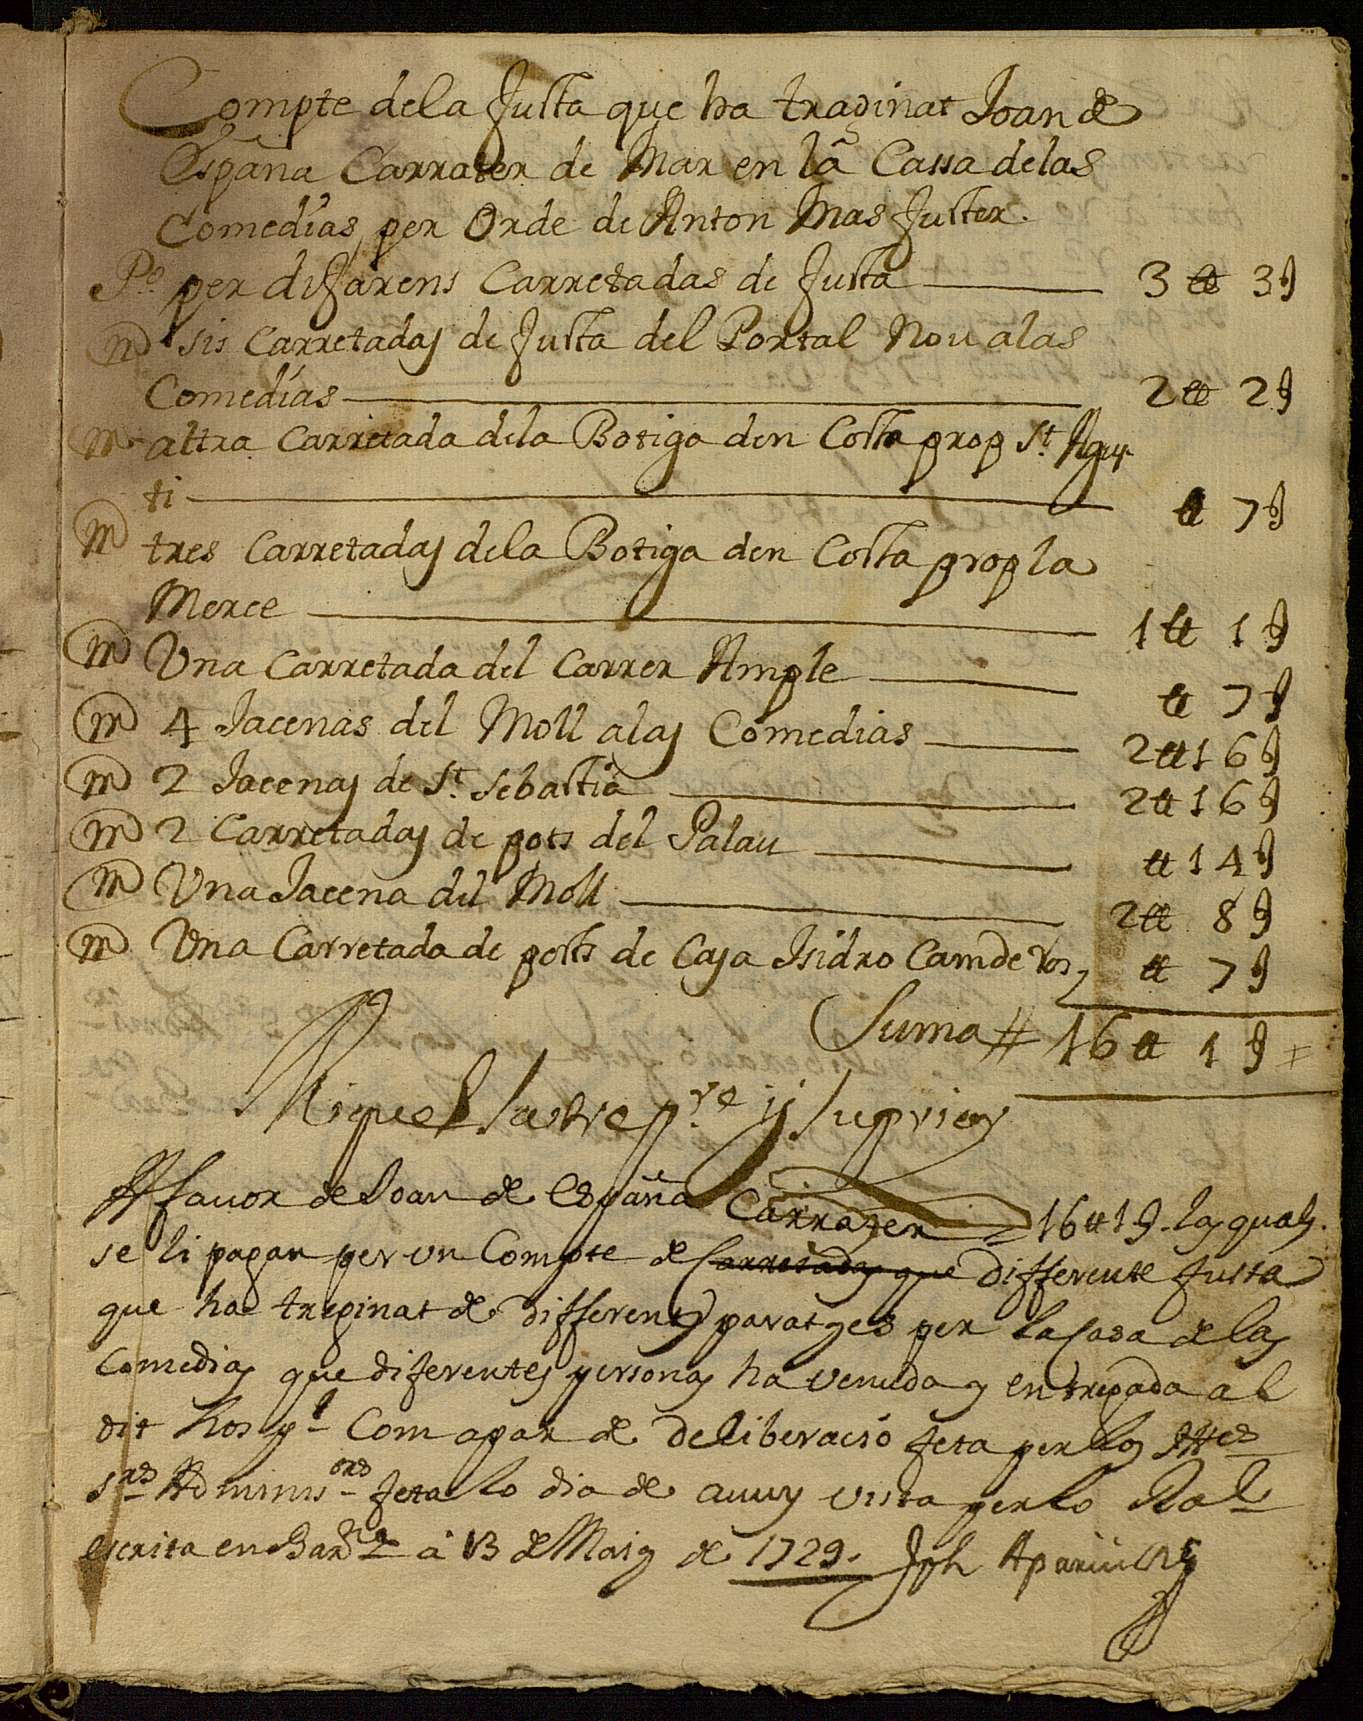 Compte dela fusta que ha traginat Joan de
España Carrater de Mar en la Cassa de las
Comedias per Orde de Anton Mas fuster.
Po. per difarens Carretadas de fusta 3 ₶ 3 ſ
m sis Carretadas de fusta del Portal Nou a las
Comedías 2 ₶ 2 ſ
m altra Carretada dela Botiga den Costa prop St. Agus
ti ₶ 7 ſ
m tres Carretadas dela Botiga den Costa prop la
Merce 1 ₶ 1 ſ
m Una Carretada del Carrer Ample ₶ 7 ſ
m 4 Jacenas del Moll a las Comedias 2 ₶ 16 ſ
m 2 Jacenas de St. Sebastia 2 ₶ 16 ſ
m 2 Carretadas de pots del Palau ₶ 14 ſ
m Una Jacena del Moll 2 ₶ 8 ſ
m Una Carretada de posts de Casa Isidro ₶ 7 ſ
Suma # 16 ₶ 1 ſ
Miquel Sastre pre. y Suprior
A favor de Joan de España Carrater 16 ₶ 1 ſ. las quals.
se li pagan per un Compte de Carretadas que differente fusta
que ha treginat de differents paratges per la Casa de las
Comedias que diferentes personas ha venuda y entregada al
dit Hospl. Com apar de deliberació feta per los Ittes
Srs. Adminisors. feta lo dia de avuy vista per lo Ral
escrita en Barna. à 13 de Maig de 1729. Jph Aparici